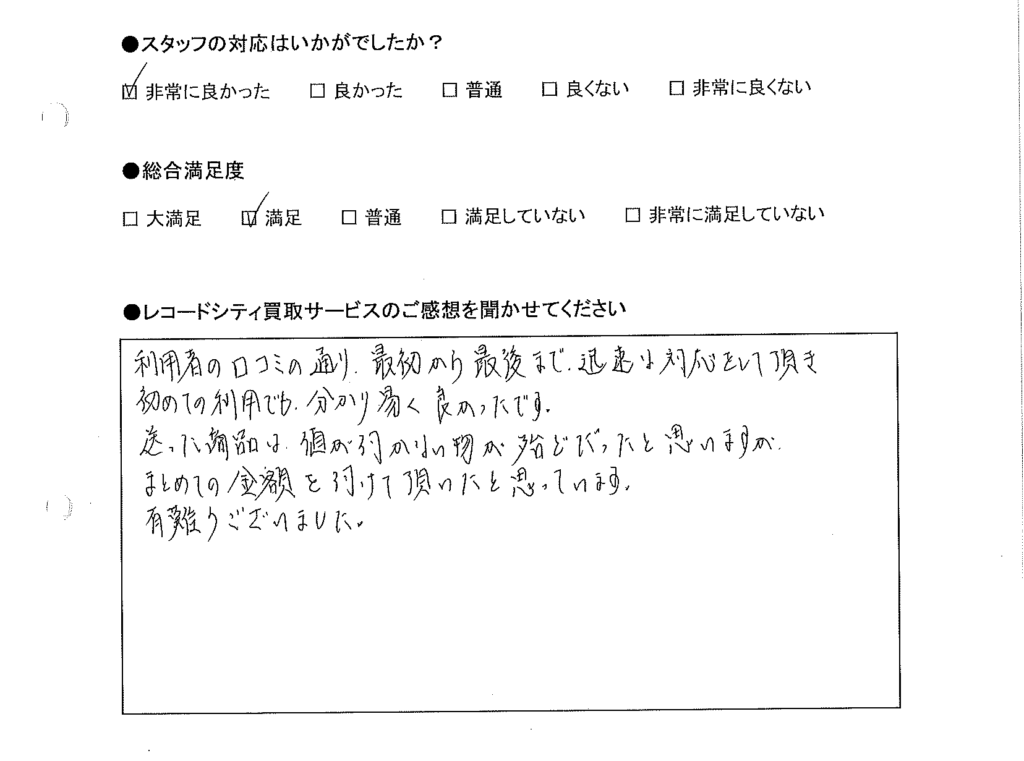 ●スタッフの対応はいかがでしたか？
☑ 非常に良かった □ 良かった □ 普通 □ 良くない □ 非常に良くない
●総合満足度
□ 大満足 ☑ 満足 □ 普通 □ 満足していない □ 非常に満足していない
●レコードシティ買取サービスのご感想を聞かせてください
利用者の口コミの通り、最初から最後まで、迅速な対応をして頂き
初めての利用でも、分かり易く良かったです。
送った商品は、値が付かない物が殆どだったと思いますが、
まとめての金額を付けて頂いたと思っています。
有難うございました。